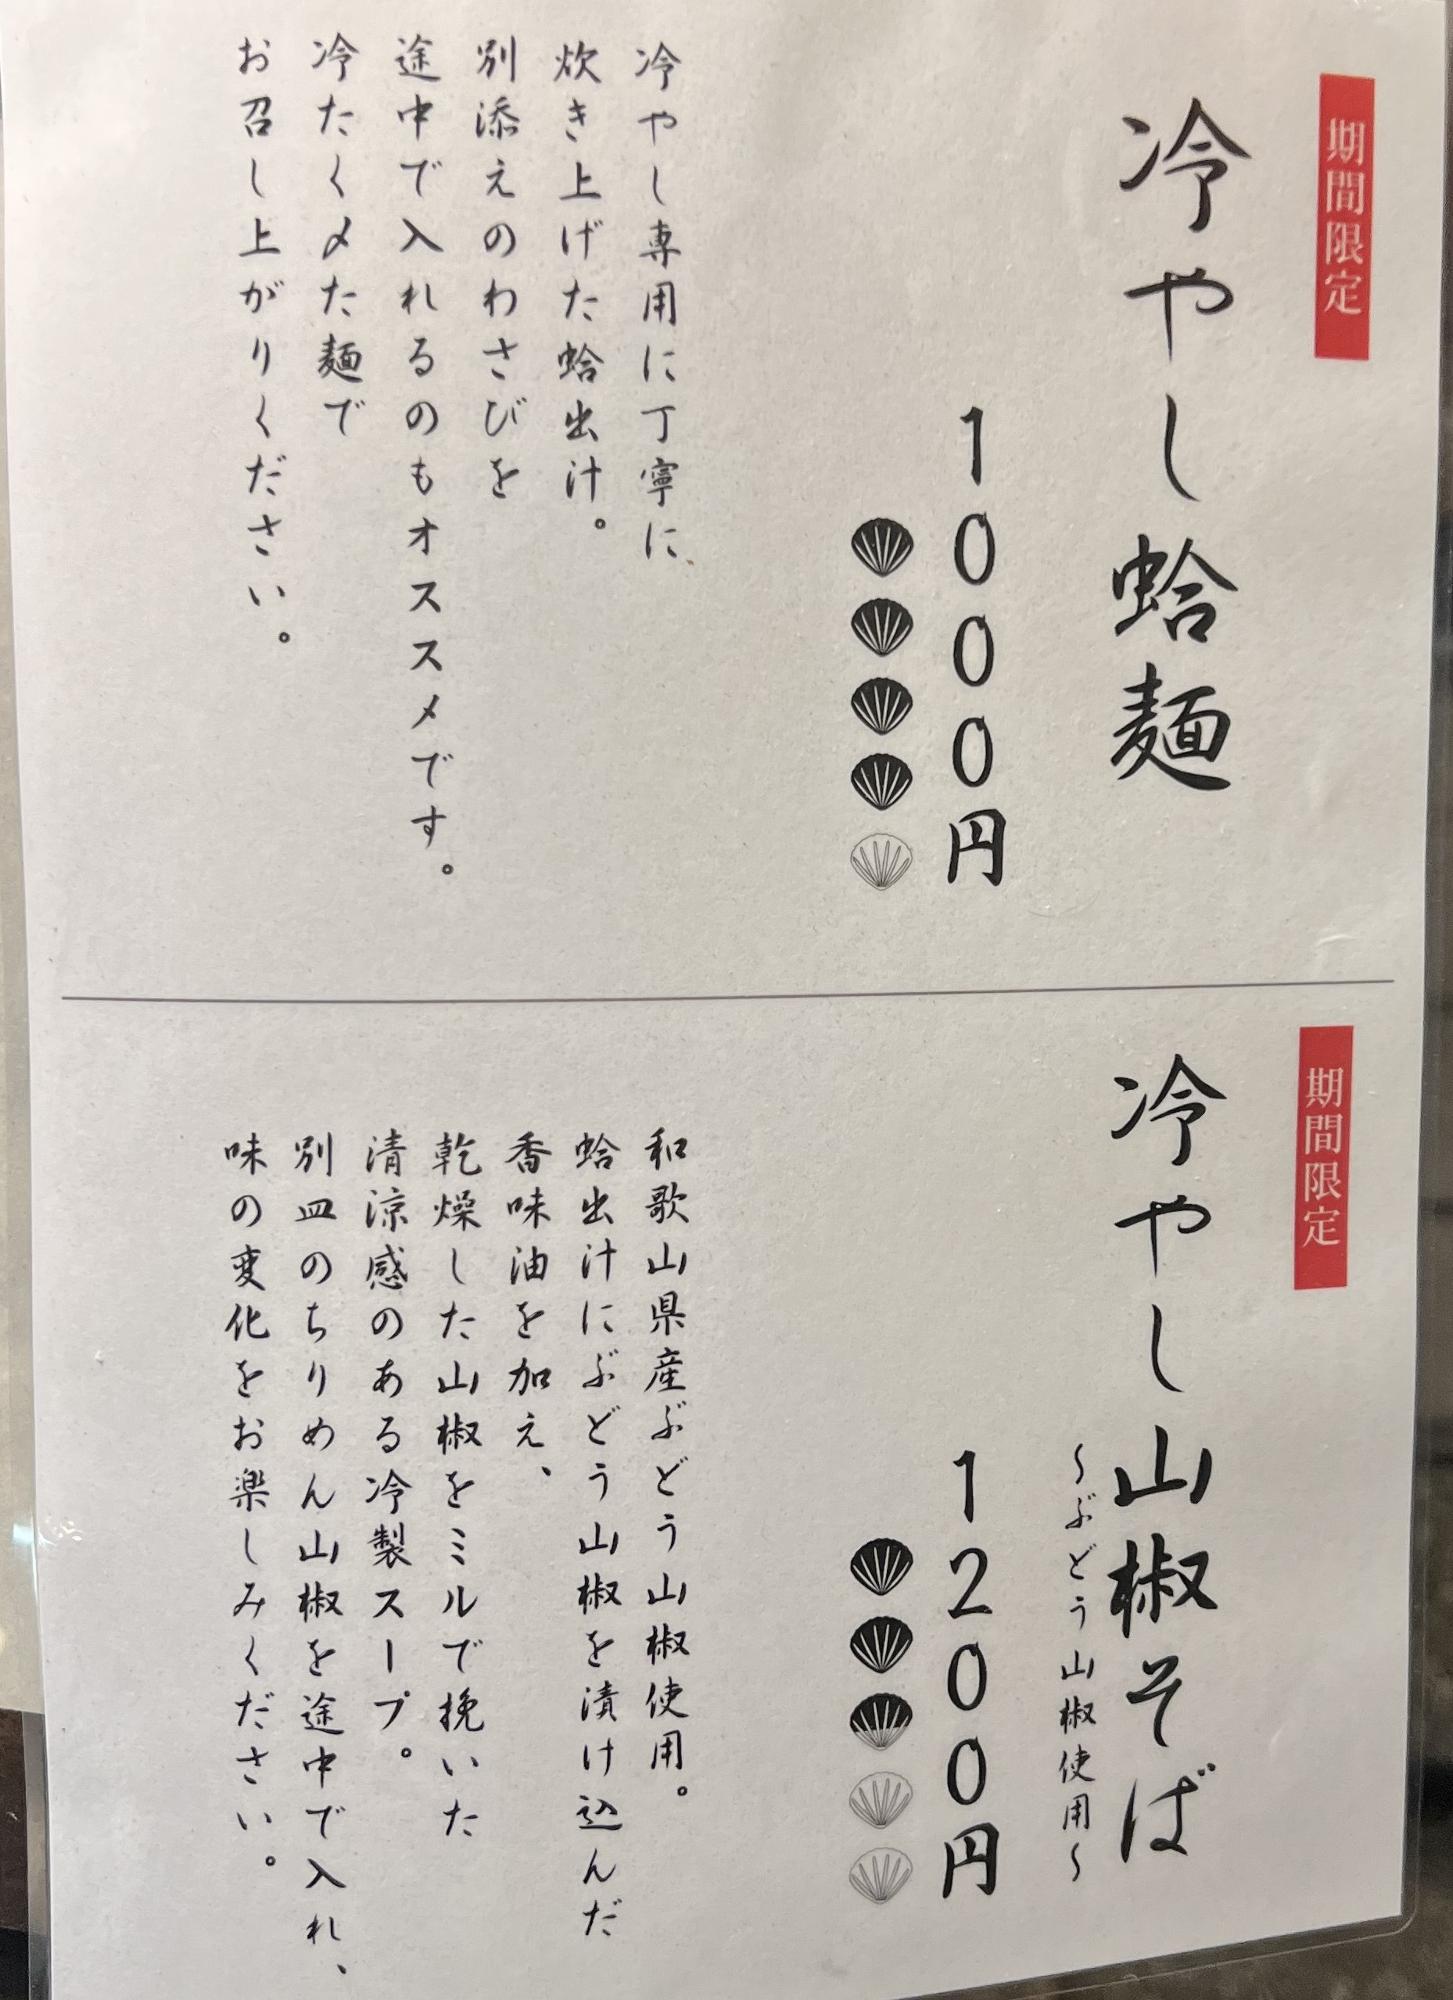 期間限定
冷やし蛤麺
1000円
冷やし専用に丁寧に
炊き上げた蛤出汁。
別添えのわさびを
途中で入れるのもオススメです。
冷たく〆た麺で
お召し上がりください。
期間限定
冷やし山椒そば
～ぶどう山椒使用～
1200円
和歌山県産ぶどう山椒使用。
蛤出汁にぶどう山椒を漬け込んだ
香味油を加え、
乾燥した山椒をミルで挽いた
清涼感のある冷製スープ。
別皿のちりめん山椒を途中で入れ、
味の変化をお楽しみください。